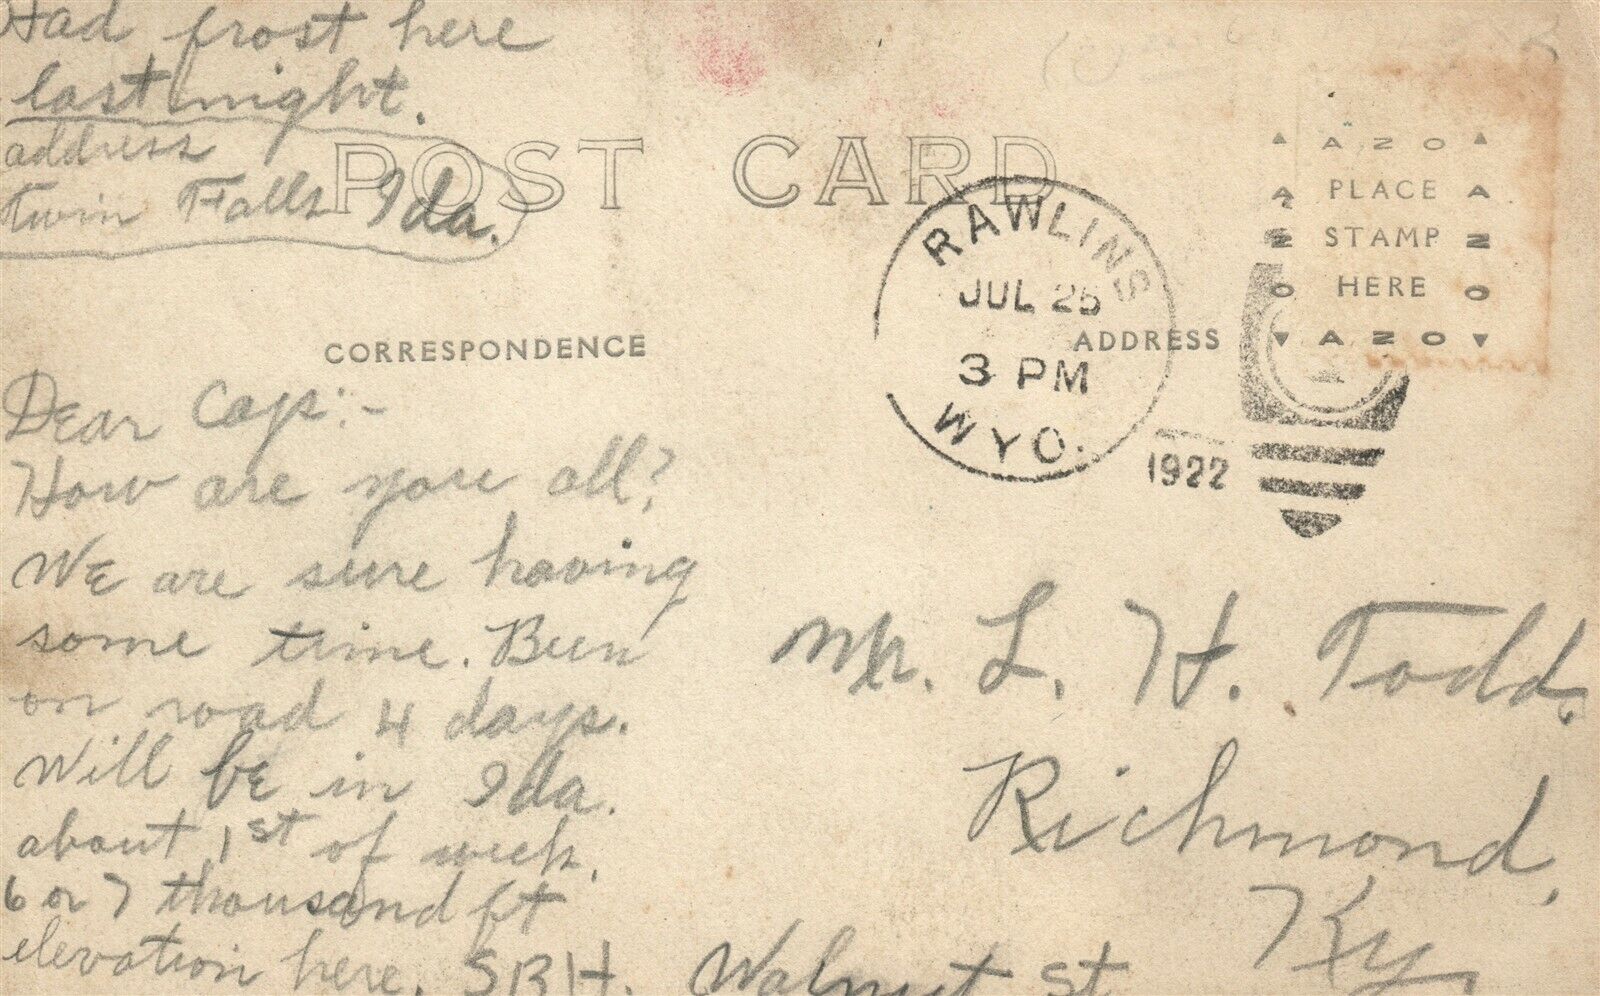 Had frost here
last night.
address
Twin Falls Ida.
POST CARD
CORRESPONDENCE
Dear Cap:-
How are youse all?
We are sure having
some time. Been
on road 4 days.
Will be in Ida.
about 1st of week.
6 or 7 thousand ft
elevation here. SBH.
RAWLINS
JUL 25
3 PM
WYO.
1922
ADDRESS
AZO
PLACE
STAMP
HERE
AZO
AZO
AZO
Mr. L. H. Todd.
Richmond,
Ky.
Walnut St